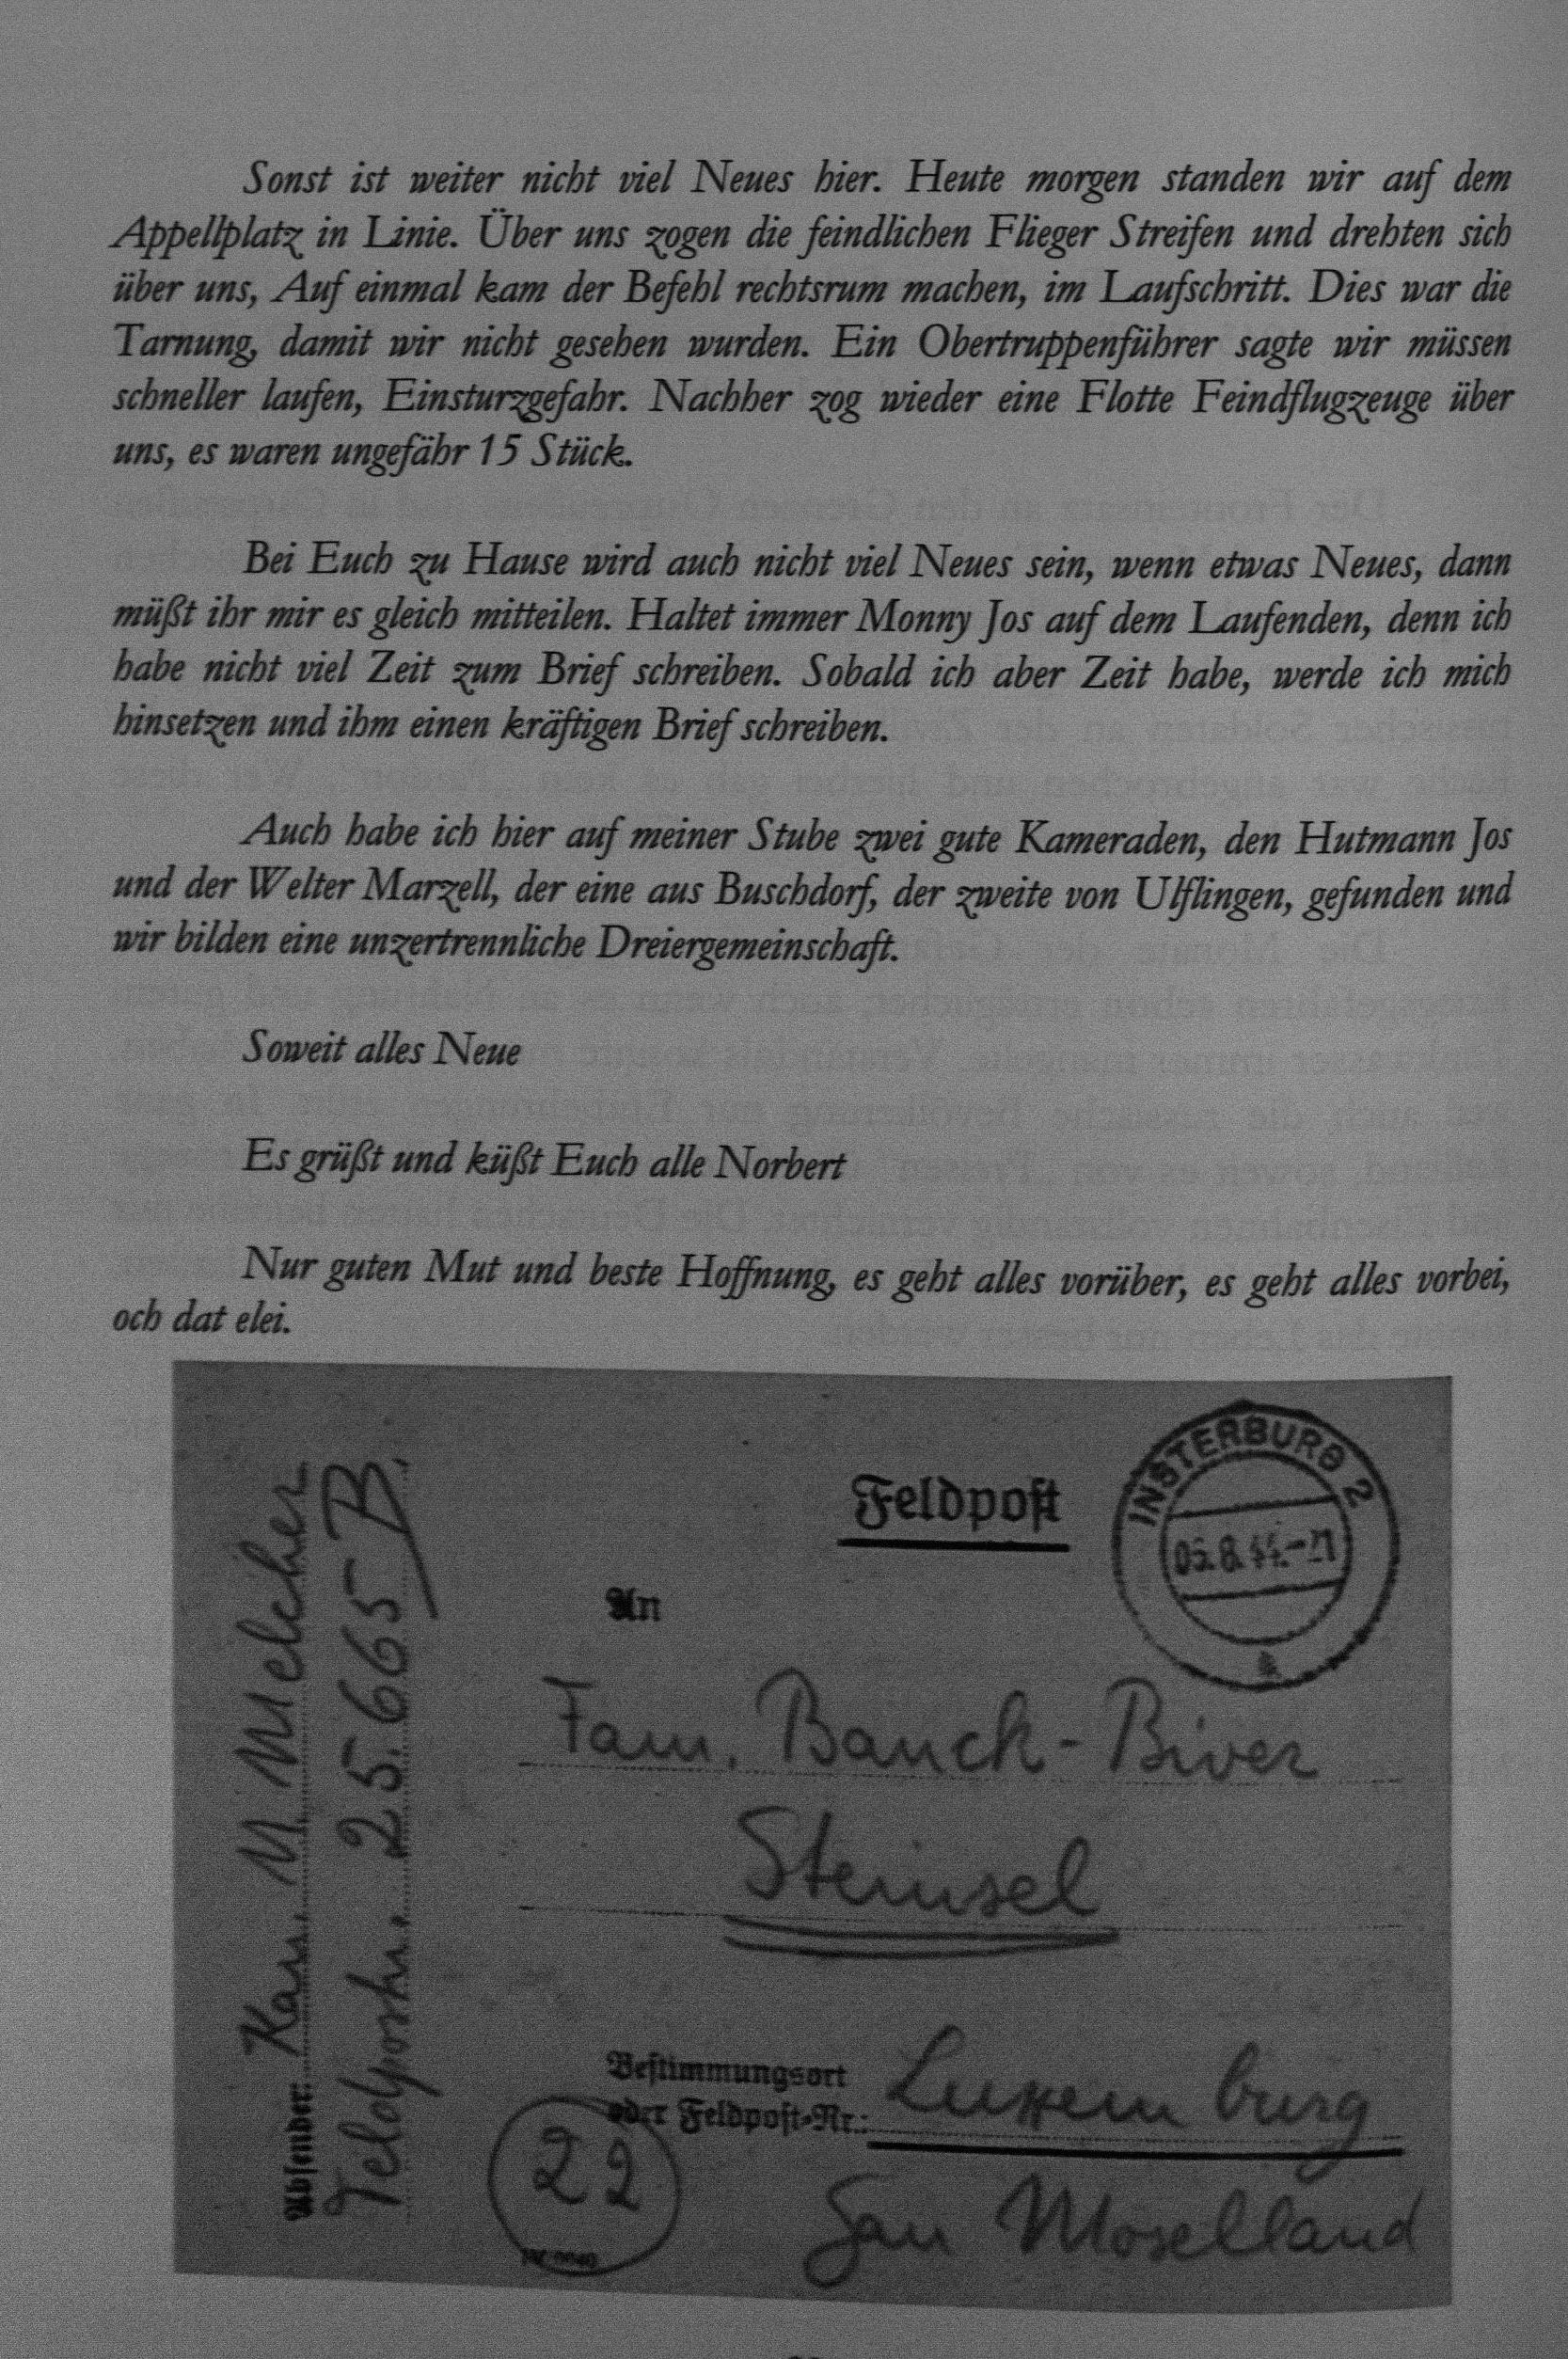 Sonst ist weiter nicht viel Neues hier. Heute morgen standen wir auf dem
Appellplatz in Linie. Über uns zogen die feindlichen Flieger Streifen und drehten sich
über uns, Auf einmal kam der Befehl rechtsrum machen, im Laufschritt. Dies war die
Tarnung, damit wir nicht gesehen wurden. Ein Obertruppenführer sagte wir müssen
schneller laufen, Einsturzgefahr. Nachher zog wieder eine Flotte Feindflugzeuge über
uns, es waren ungefähr 15 Stück.
Bei Euch zu Hause wird auch nicht viel Neues sein, wenn etwas Neues, dann
müßt ihr mir es gleich mitteilen. Haltet immer Monny Jos auf dem Laufenden, denn ich
habe nicht viel Zeit zum Brief schreiben. Sobald ich aber Zeit habe, werde ich mich
hinsetzen und ihm einen kräftigen Brief schreiben.
Auch habe ich hier auf meiner Stube zwei gute Kameraden, den Hutmann Jos
und der Welter Marzell, der eine aus Buschdorf, der zweite von Ulflingen, gefunden und
wir bilden eine unzertrennliche Dreiergemeinschaft.
Soweit alles Neue
Es grüßt und küßt Euch alle Norbert
Nur guten Mut und beste Hoffnung, es geht alles vorüber, es geht alles vorbei,
och dat elei.
Feldpost
INSTERBURG 2
05.8.44.-21
a
An
Fam. Bauck-Biver
Steinsel
Bestimmungsort
oder Feldpost-Nr.: Luxemburg
Gau Moselland
22
Absender: Kan. M. Melcher
Feldpostn. 25.665 B.